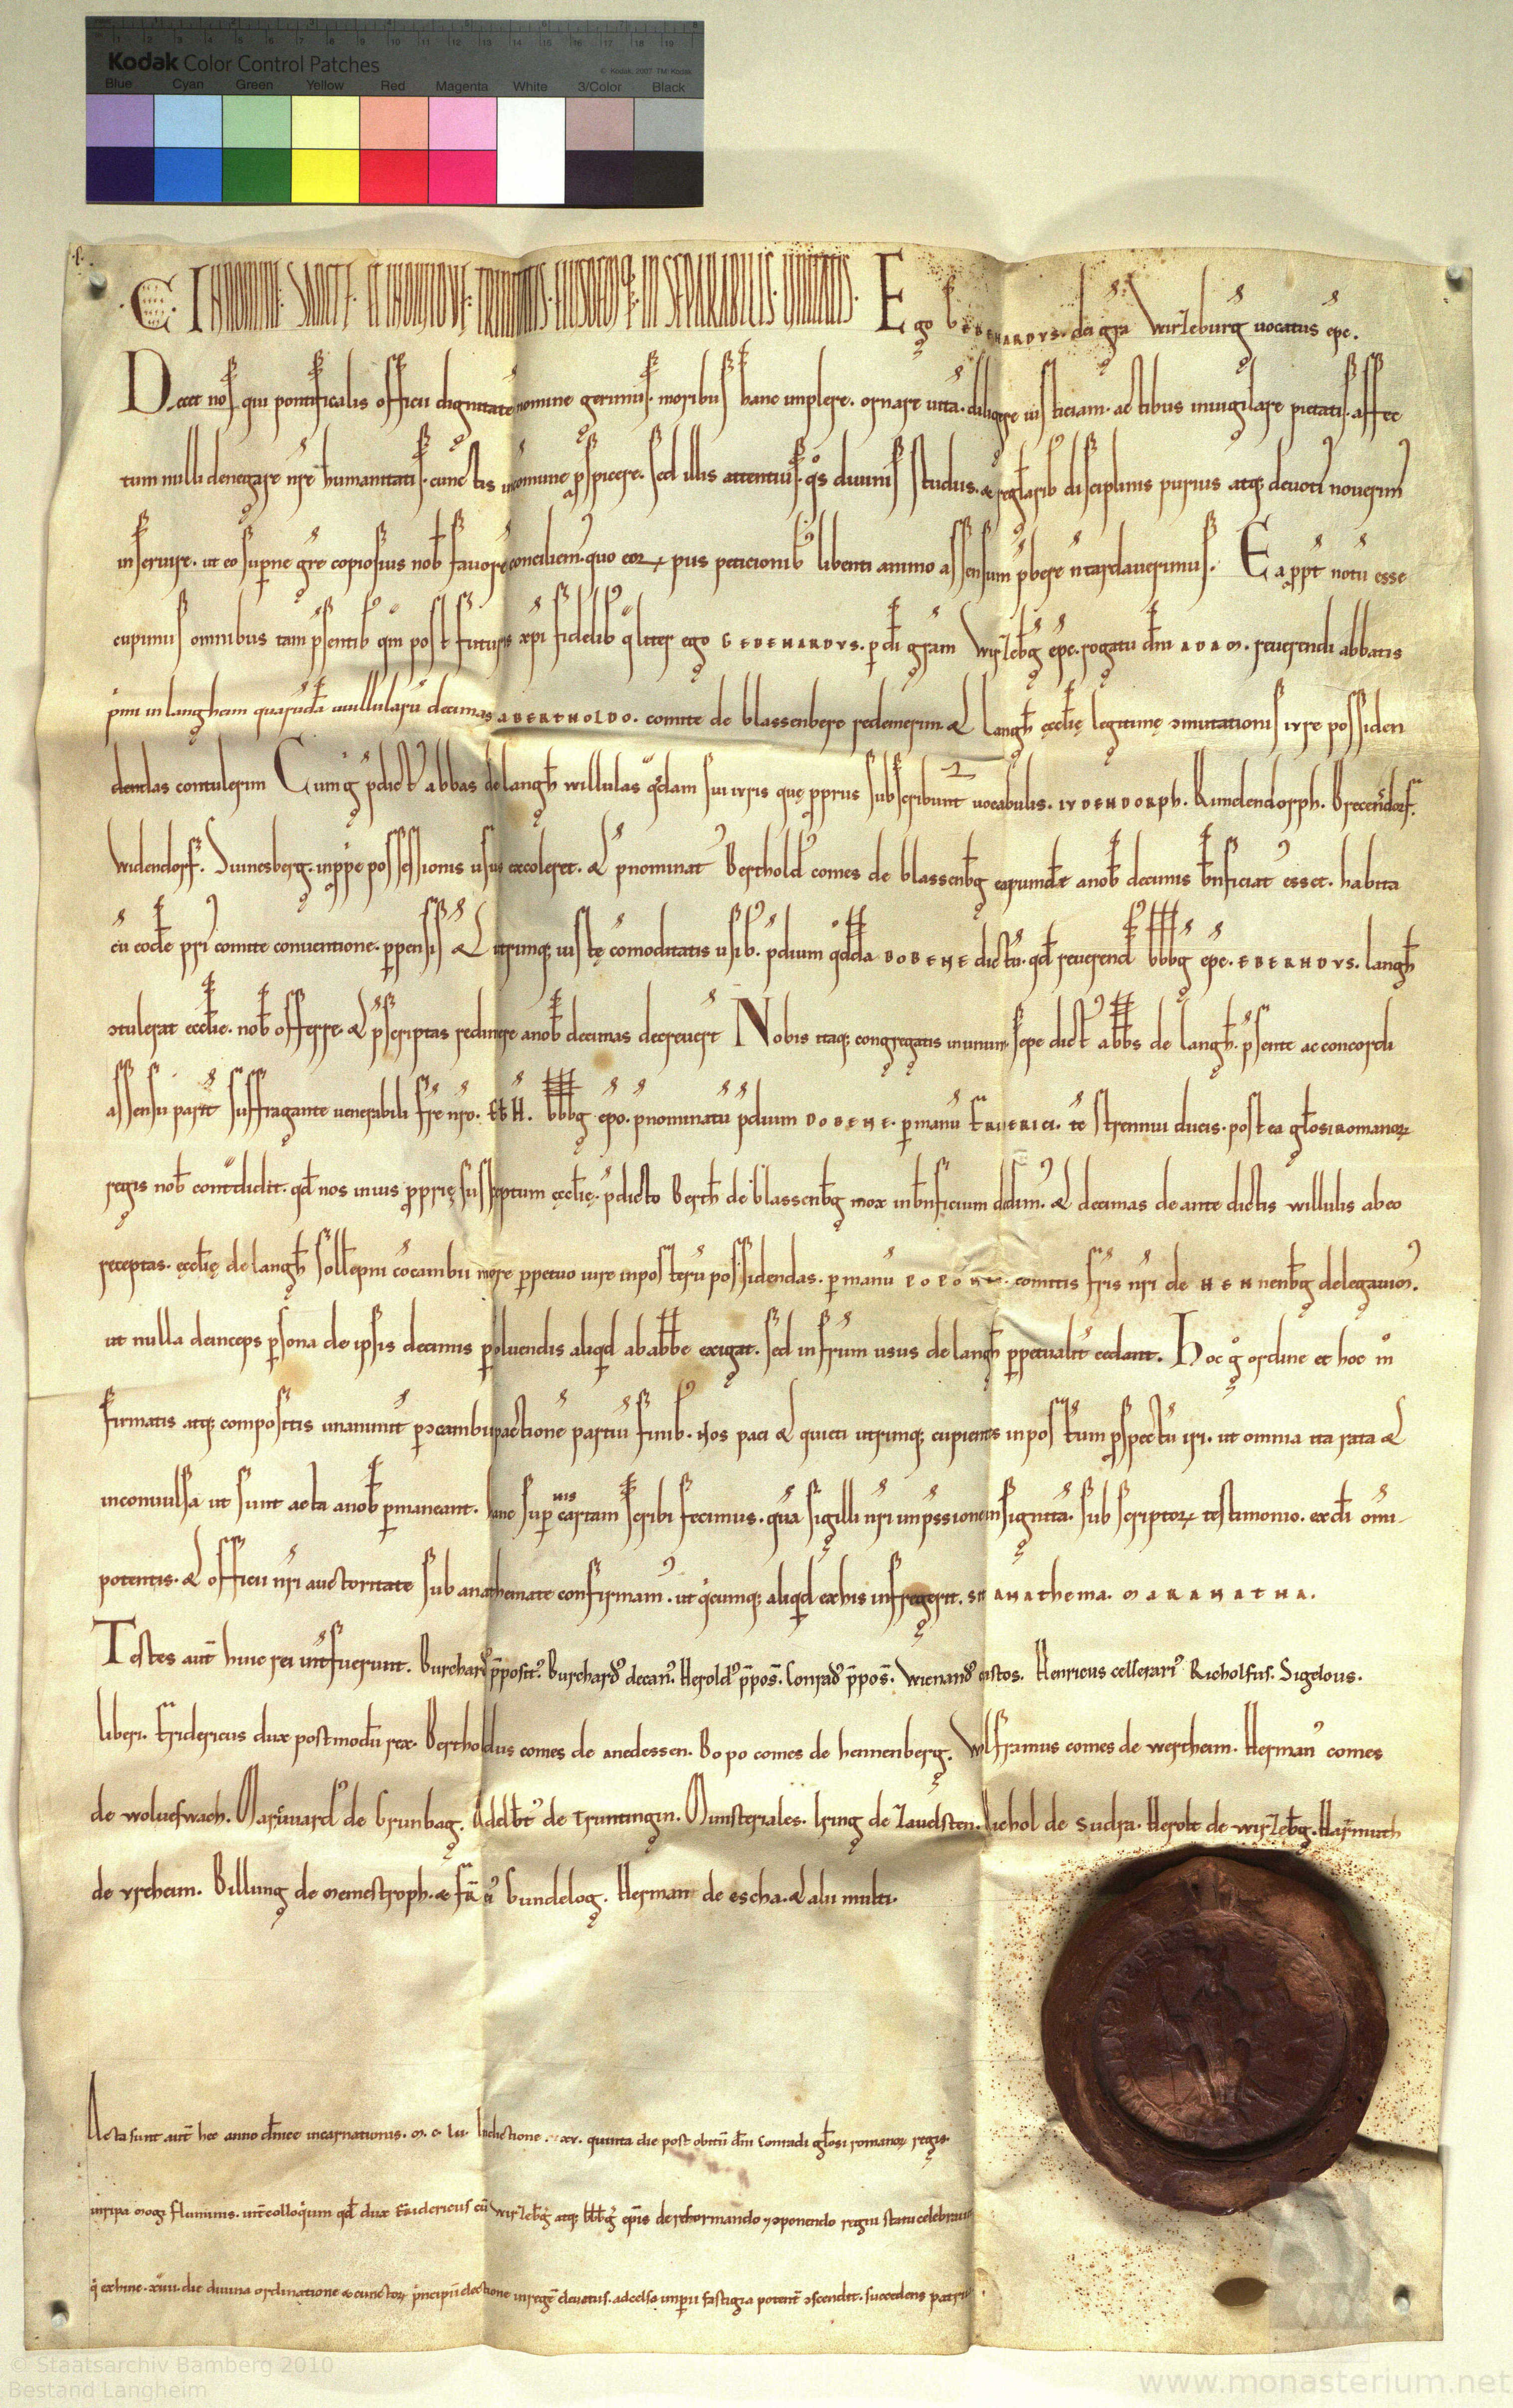 Kodak Color Control Patches
© Kodak, 2007 TM: Kodak
Blue Cyan Green Yellow Red Magenta White 3/Color Black
C. IN NOMINE SANCTE ET INDIVIDVE TRINITATIS EIUSDEMQ; IN SEPARABILIS UNITATIS. Ego GEBEHARDVS. dei gra Wirzeburg uocatus epc.
Decet nos qui pontificalis officii dignitate nomine gerimus. moribus hanc implere. ornare uita. diligere iusticiam. actibus inuigilare pietatis. affec
tum nulli denegare nre humanitatis. cunctis in comune pspicere. sed illis attentius. qos diuinis studiis. & reglarib disciplinis purius atq; deuoti nouerim
inseruire. ut eo superne gre copiosius nob fauore conciliem quo eor piis peticionib libenti animo assensum pbere n tardauerimus. Ea ppt notu esse
cupimus omnibus tam psentib qm post futuris xpi fidelib qliter ego GEBEHARDVS. p di gram Wirzebg epc. rogatu dni ADAM. reuerendi abbatis
pmi in langheim quarunda uillularu decimas A BERTHOLDO. comite de blassenberc redemerim & langh ecclie legitime ɔmutationis iure possiden
dendas contulerim Cum g pdict abbas de langh willulas qdam sui iuris que pprus subscribunt uocabulis. IVDENDORPh. Kunclendorph. Brecendorf.
Widendorf. Siunesberg. in ppe possessionis usus excoleret. & pnominat Berthold comes de blassenbg earumde a nob decimis bnficiat esset. habita
cu eode pri comite conuentione. ppensis & utrimq; iuste comoditatis usib. pdium qdda DOBEHE dictu. qd reuerend bbbg epc. EBERHDVS. langh
ɔtulerat ecclie. nob offerre. & pscriptas redimere a nob decimas decreuert Nobis itaq; congregatis in unum. sepe dict abbs de langh. psente ac concordi
assensu parit suffragante uenerabili fre nro. EbH. bbbg epo. pnominatu pdium DOBEHE. p manu FRIDERICI. tc strennui ducis. postea glosi romanor
regis nob contdidit. qd nos in ius pprie susceptum ecclie. pdicto Berth de blassenbg mox in bnficium dedim. & decimas de ante dictis willulis ab eo
receptas. ecclie de langh sollepni cocambii more ppetuo iure in posteru possidendas. p manu POPONIS. comitis fris nri de HENnenbg delegauim.
ut nulla deinceps psona de ipsis decimis psoluendis aliqd ab abbe exigat. sed in frum usus de langh ppetualit cedant. Hoc g ordine et hoc m
firmatis atq; compositis unanimit p ɔcambii pactione partiu finib. Nos paci & quieti utrimq; cupientes in post tum pspectu iri. ut omnia ita rata &
inconuulsa ut sunt acta a nob pmaneant. hanc sup his cartam scribi fecimus. qua sigilli nri impssione insignita. sub scriptor testimonio. ex di omi-
potentis. & officii nri auctoritate sub anathemate confirmam. ut qcumq; aliqd ex his infregerit. sit ANAthema. MARANATHA.
Testes aut huic rei intfuerunt. Burchard pposit. Burchard decan. Herold ppos. Conrad ppos. Wienand custos. Henricus cellerari. Richolfus. Sigelous.
liberi. Fridericus dux postmodu rex. Bertholdus comes de anedessen. Bopo comes de hennenberg. Wlframus comes de wertheim. Herman comes
de woluefwach. Marcward de Grunbag. Adelbt de Truntingin. Ministeriales. Iring de Zauelsten. Richol de Sudra. Herolt de wirzebg. Harmuth
de vrcheim. Billung de Memestroph. & fr ei bundelog. Herman de escha. & alii multi.
Acta sunt aut hec anno dnice incarnationis. M. C. LII. Indictione. xv. quinta die post obitu dni Conradi glosi romanor regis.
in ripa Mogi fluminis. int colloquium qd dux Fridericus cu Wirzebg atq; bbbg epis de reformando & ɔponendo regni statu celebrauit
q exhinc. xviii. die diuina ordinatione & cunctor principu electione in rege eleuatus. ad celsa imperii fastigia potent ɔscendit. succedens patruo.
© Staatsarchiv Bamberg 2010
Bestand Langheim
www.monasterium.net